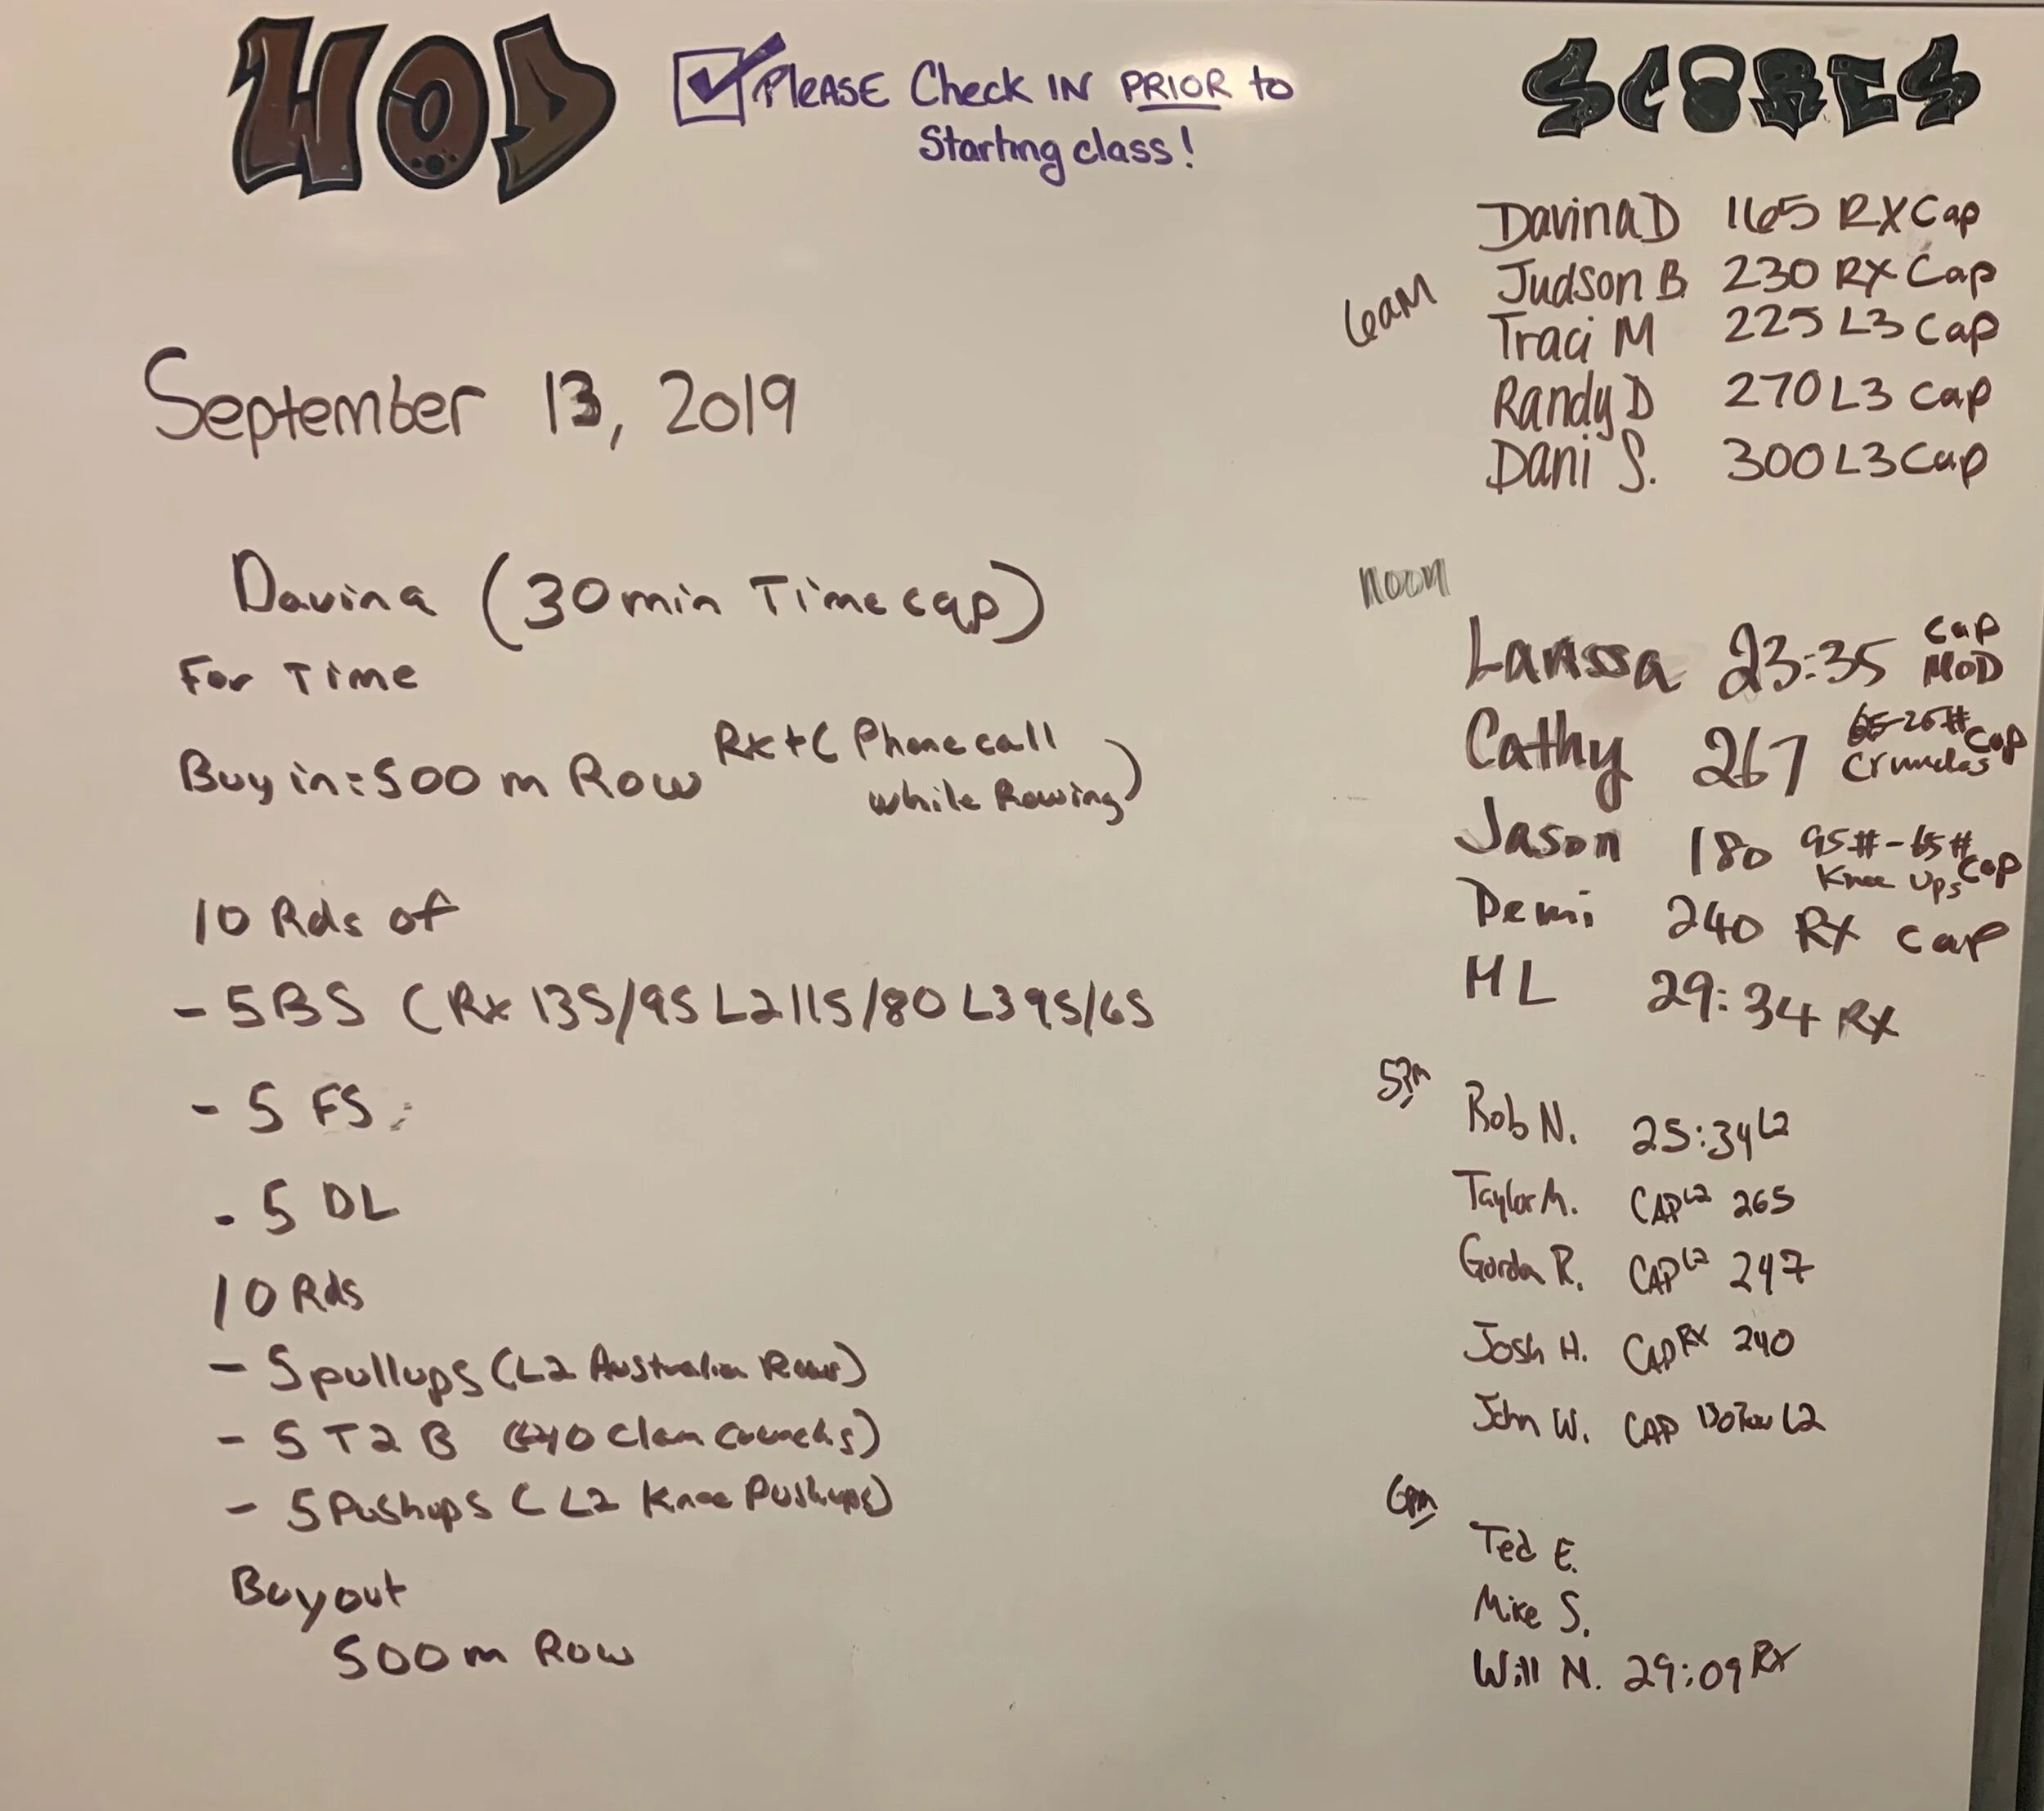 WOD
PLEASE Check IN PRIOR to
Starting class!
September 13, 2019
Davina (30min Timecap)
For Time
Buy in: 500 m Row Rx+ ( Phone call
while Rowing)
10 Rds of
- 5 BS ( Rx 135/95 L2 115/80 L3 95/65
- 5 FS
- 5 DL
10 Rds
- 5 pullups (L2 Australian Rows)
- 5 T2B (10 Clam Crunchs)
- 5 Pushups ( L2 Knee Pushups)
Buyout
500m Row
SCORES
6am
Davina D 165 RX Cap
Judson B. 230 RX Cap
Traci M 225 L3 Cap
Randy D 270 L3 Cap
Dani S. 300 L3 Cap
noon
Larissa 23:35 Cap
MOD
Cathy 267 65-25# Cap
Crunches
Jason 180 95#-65# Cap
Knee Ups
Demi 240 RX Cap
ML 29:34 RX
5pm
Rob N. 25:34 L2
Taylor M. CAP L2 265
Gordon R. CAP L2 247
Josh H. CAP RX 240
John W. CAP L2
6pm
Ted E.
Mike S.
Will N. 29:09 RX